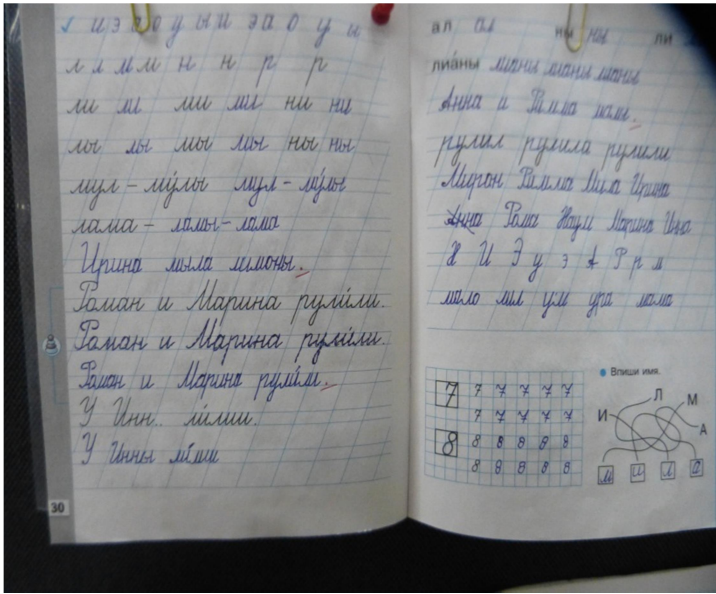 и э а о у ы и э а о у ы
л л м м н н р р
ли ли ми ми ни ни
лы лы мы мы ны ны
мул – му́лы мул – му́лы
лама – ламы – лама
Ирина мыла лимоны.
Роман и Марина рули́ли.
Роман и Марина рули́ли.
Роман и Марина рули́ли.
У Инн.. ли́лии.
У Инны ли́лии
30
ал ал ны ны ли
лиа́ны лианы лианы лианы
Анна и Римма мыли.
рулил рулила рулили
Мирон Римма Мила Ирина
Анна Рома Наум Марина Инна
Н И Э у э А Р р м
мало мил ум ура лама
7 7 7 7 7 7
7 7 7 7 7
8 8 8 8 8 8
8 8 8 8 8
Впиши имя.
Л М
И А
м и л а